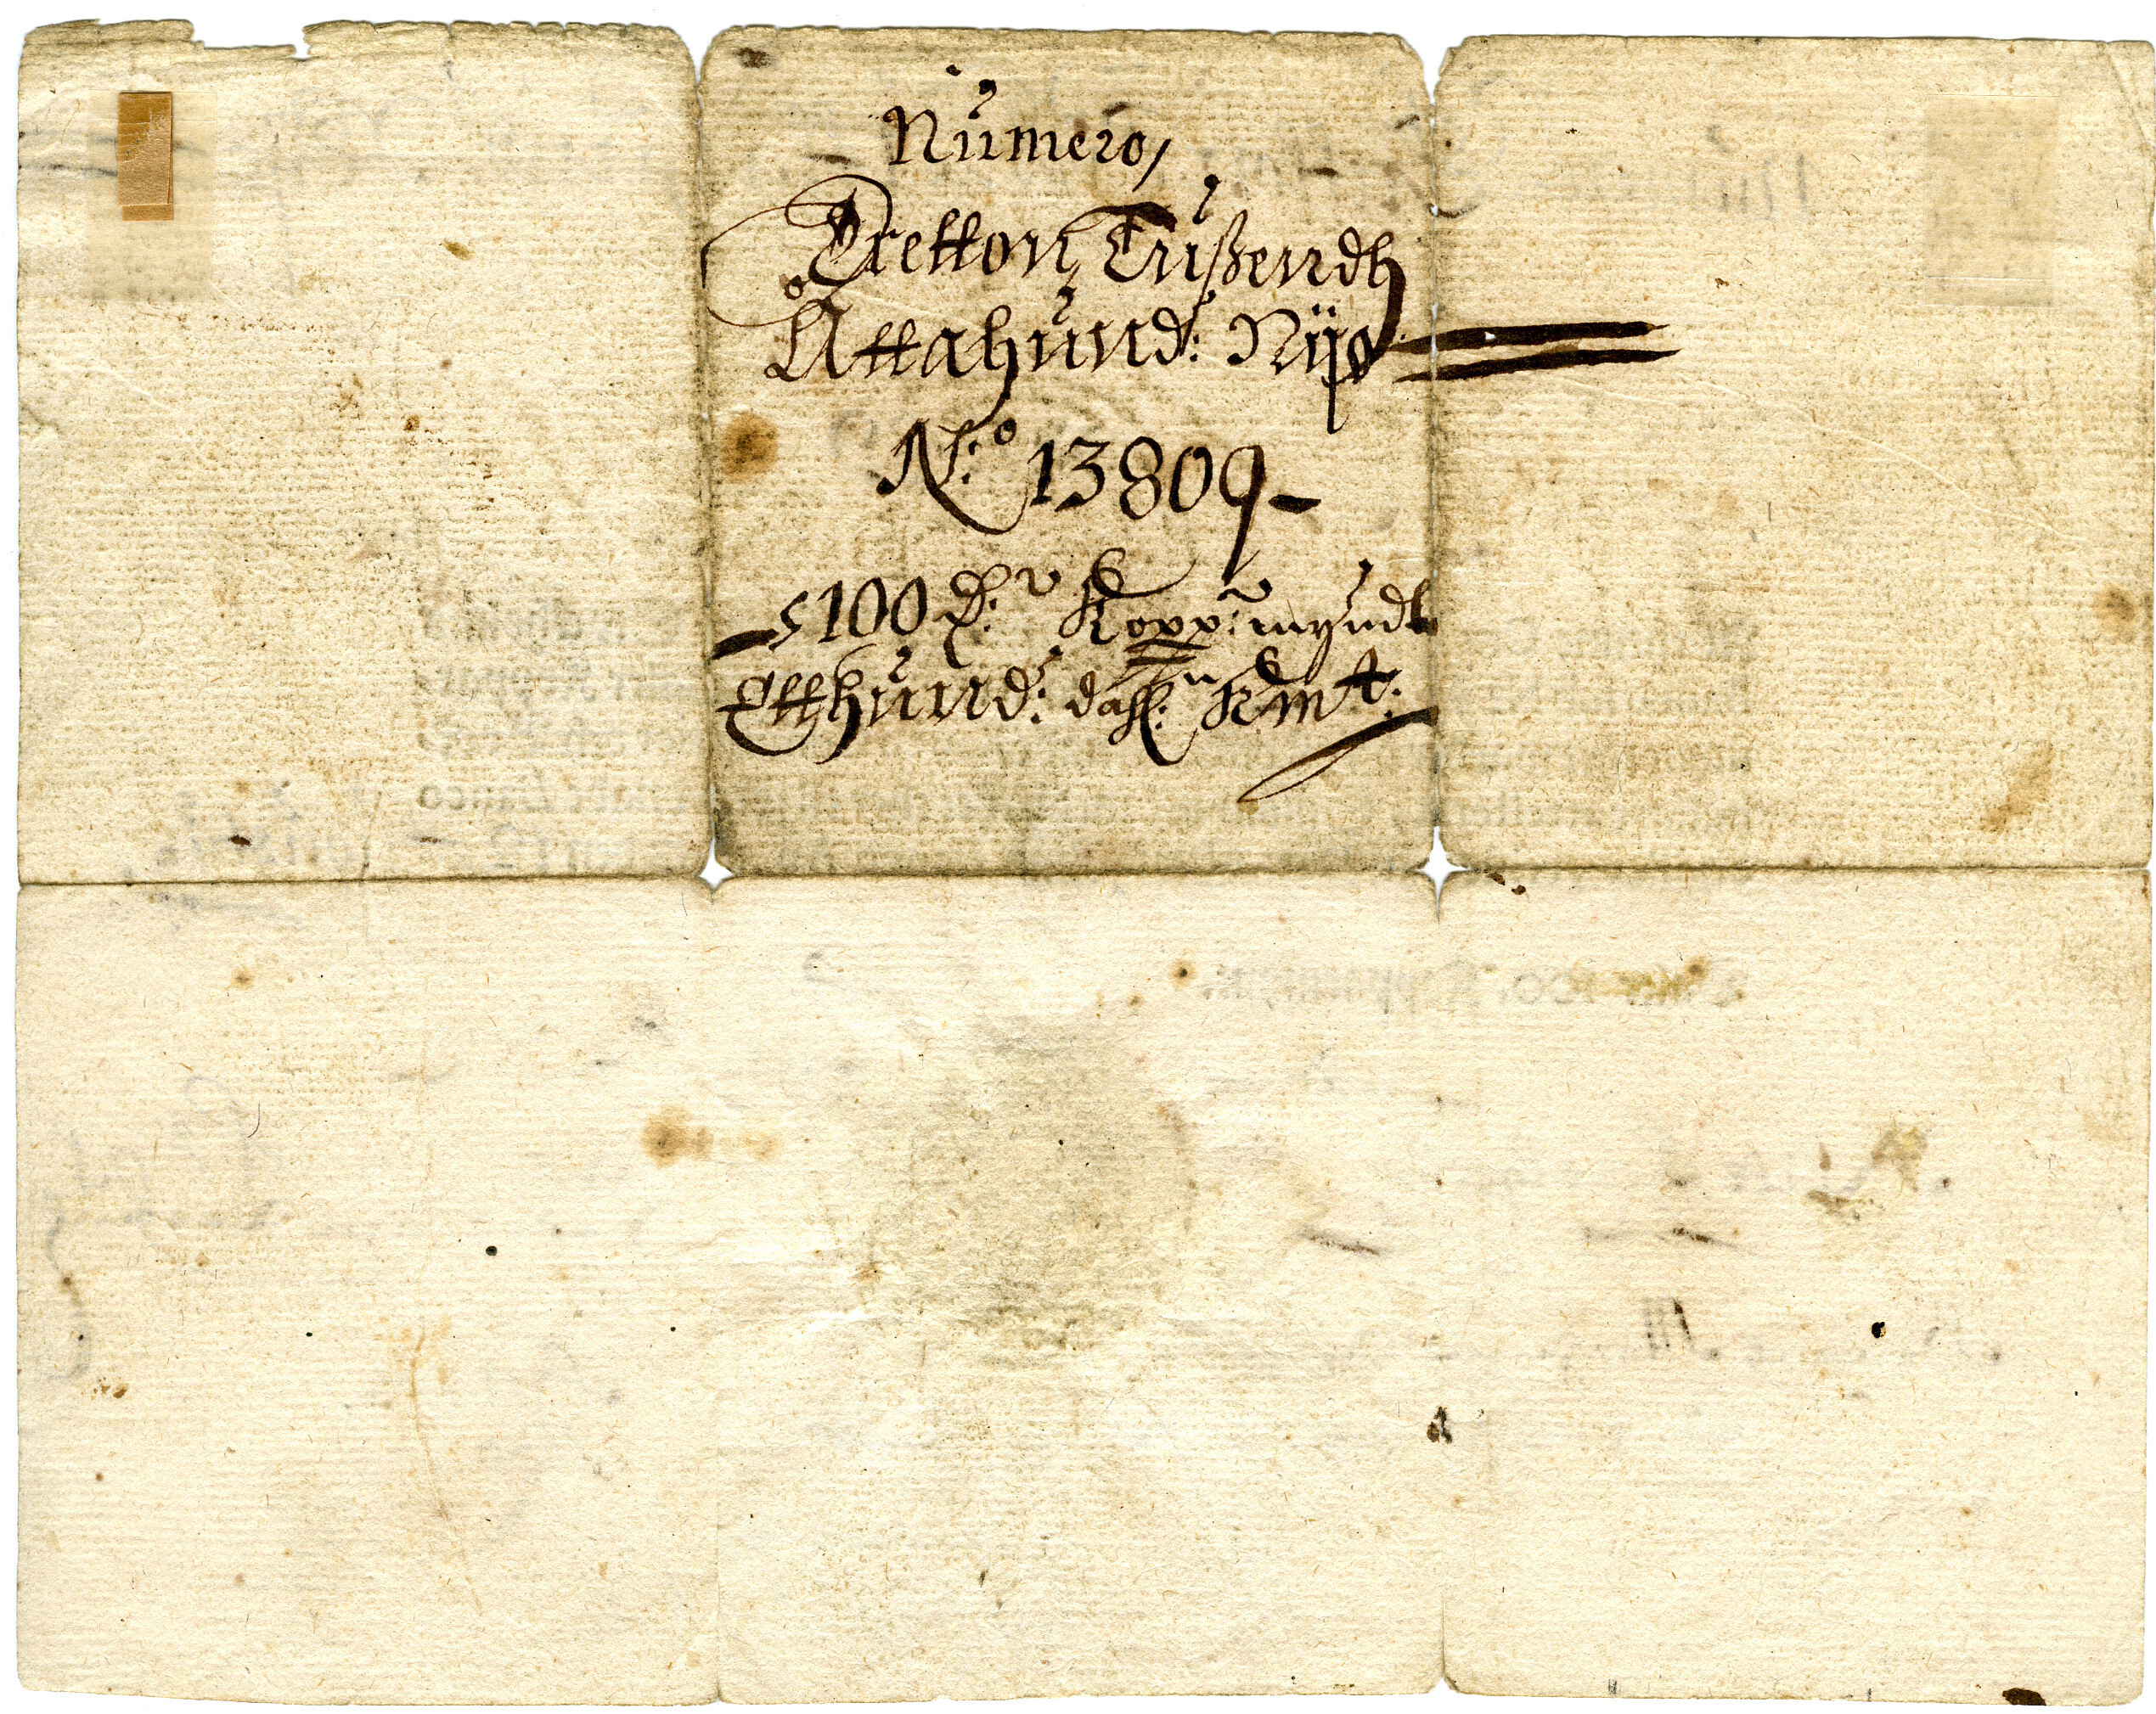 Numero,
Tretton Tußendh
Åttahund: Nijo
N:o 13809
S 100 D:r Kopp:r myndt
Etthund: dahl:r K m t: